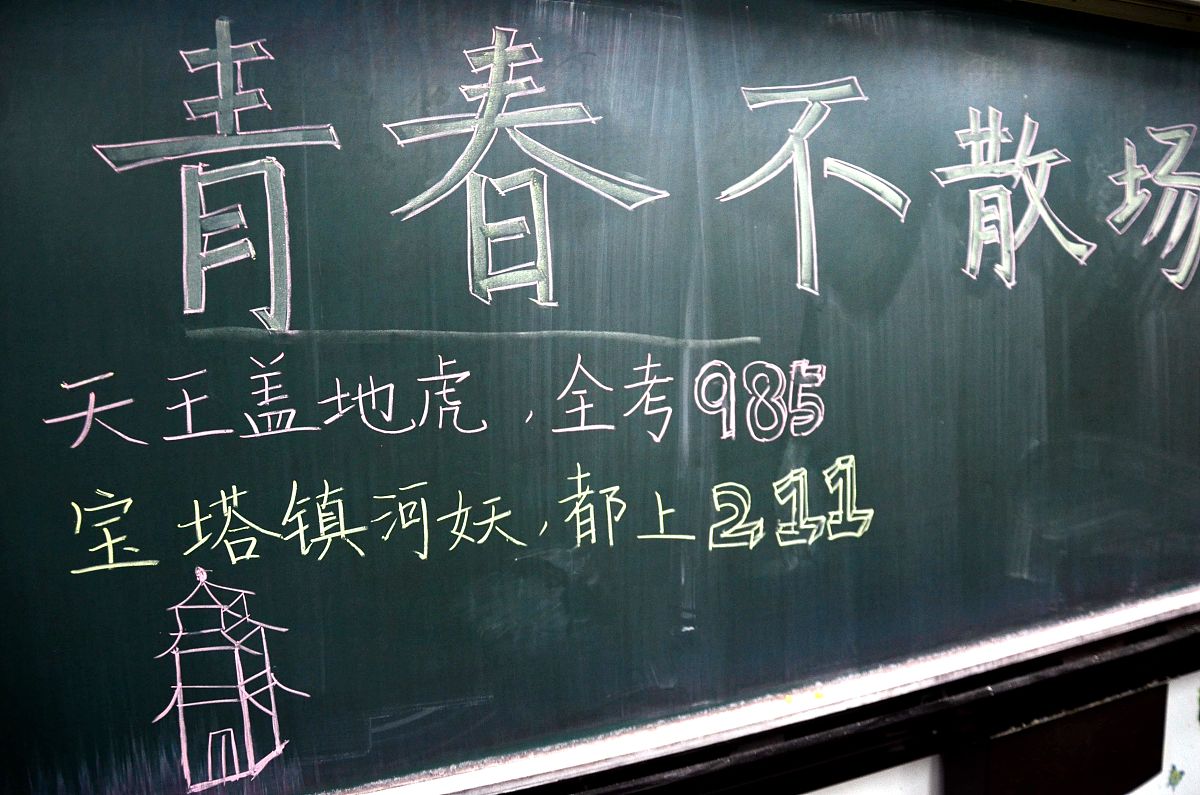 青春不散场
天王盖地虎,全考985
宝塔镇河妖,都上211